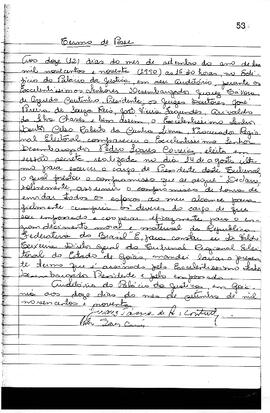 53
Termo de Posse
Aos doze (12) dias do mês de setembro do ano de hum
mil novecentos e noventa (1990) às 16:30 horas, no Edi-
fício do Palácio da Justiça, em seu Auditório, perante os
Excelentíssimos Senhores Desembargador Juarez Távora
de Azeredo Coutinho, Presidente, os Juízes Doutores José
Pereira de Souza Reis, José Vieira Fagundes,
da Silva Chaves, bem assim o Excelentíssimo Senhor
Doutor Cláo Roberto da Cunha Lima, Procurador Regio-
nal Eleitoral, compareceu o Excelentíssimo Senhor
Desembargador Pedro Soares Correia, eleito em
sessão secreta realizada no dia 14 de agosto últi-
mo para exercer o cargo de Presidente deste Tribunal
o qual prestou o compromisso que se segue: Declaro,
solenemente, assumir o compromisso de honra de
envidar todos os esforços ao meu alcance para
fielmente cumprir os deveres do cargo de que
sou empossado e cooperar eficazmente para o en-
grandecimento moral e material da República
Federativa do Brasil. E, para constar, eu
Diretor Geral do Tribunal Regional Eleito-
ral do Estado de Goiás, mandei lavrar o presen-
te termo que é assinado pelo Excelentíssimo Senhor
Desembargador Presidente e pelo empossado.
Auditório do Palácio da Justiça, em Goiâ-
nia aos doze dias do mês de setembro de mil
novecentos e noventa.